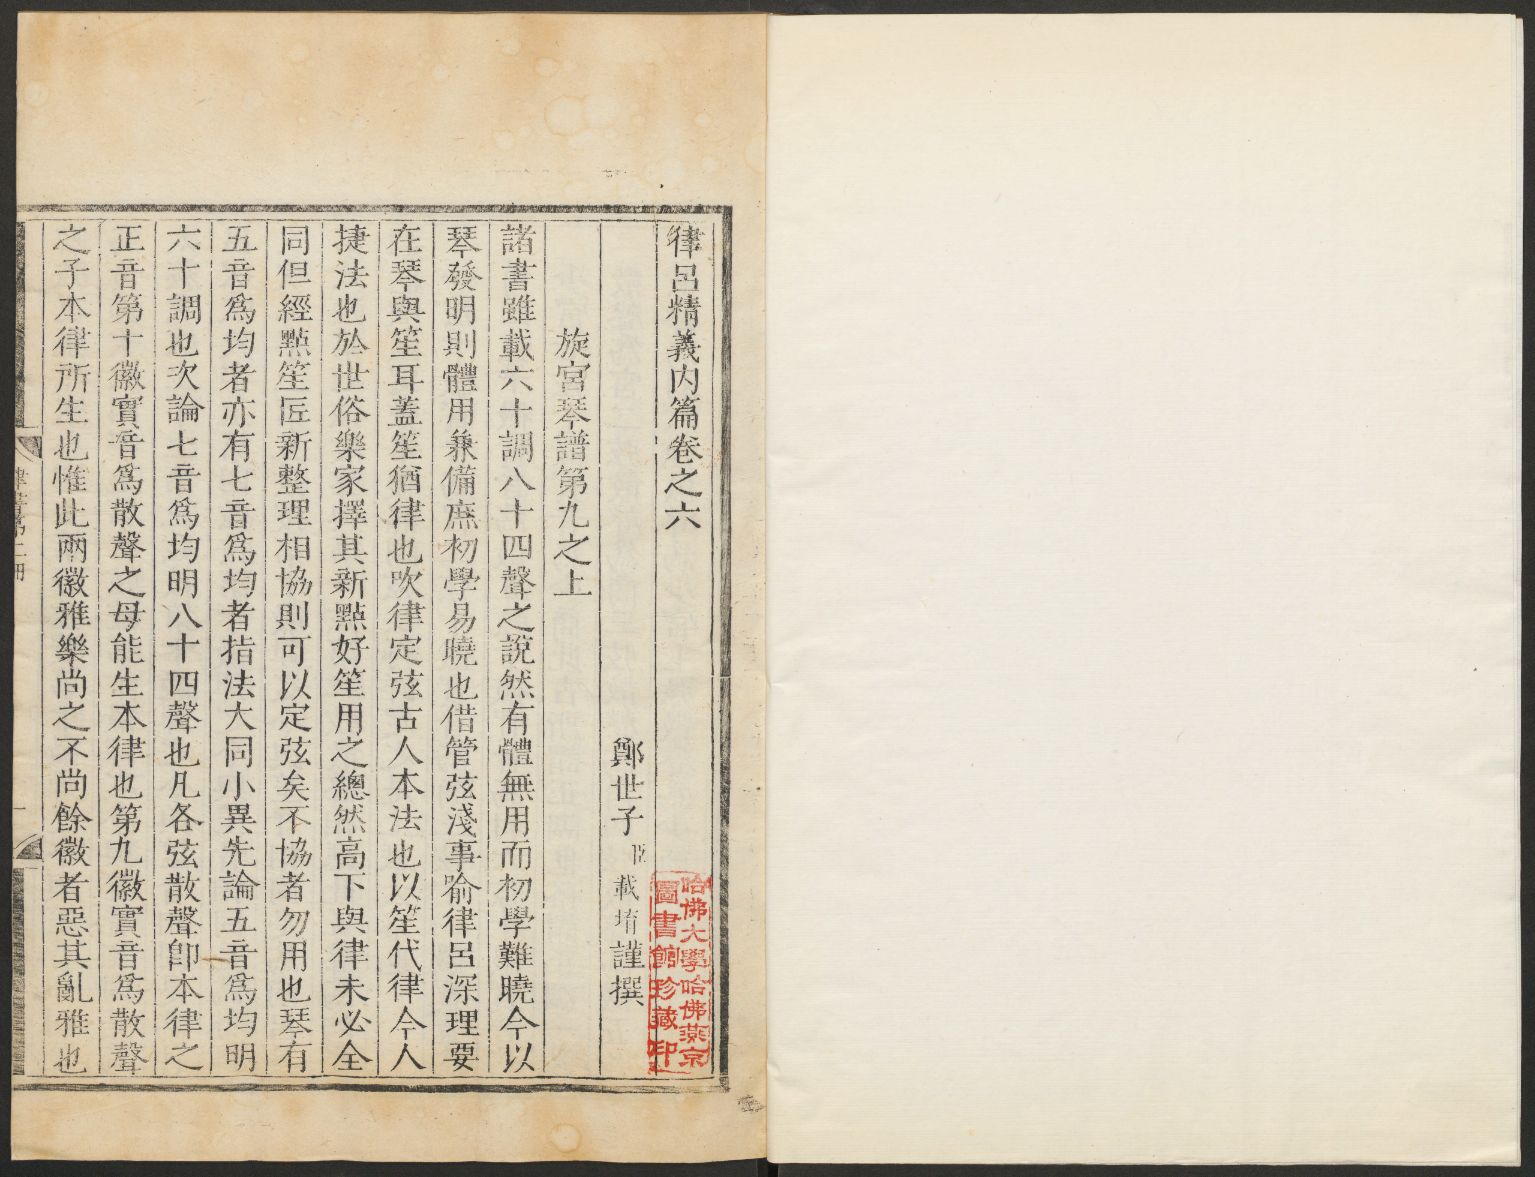 律呂精義内篇卷之六
鄭世子臣載堉謹撰
旋宮琴譜第九之上
諸書雖載六十調八十四聲之說然有體無用而初學難曉今以
琴發明則體用兼備庶初學易曉也借管弦淺事喻律呂深理要
在琴與笙耳蓋笙猶律也吹律定弦古人本法也以笙代律今人
捷法也於世俗樂家擇其新㸃好笙用之總然高下與律未必全
同但經㸃笙匠新整理相協則可以定弦矣不協者勿用也琴有
五音爲均者亦有七音爲均者指法大同小異先論五音爲均明
六十調也次論七音爲均明八十四聲也凡各弦散聲卽本律之
正音第十徽實音爲散聲之母能生本律也第九徽實音爲散聲
之子本律所生也惟此兩徽雅樂尚之不尚餘徽者惡其亂雅也
哈佛大學哈佛燕京
圖書館珍藏印